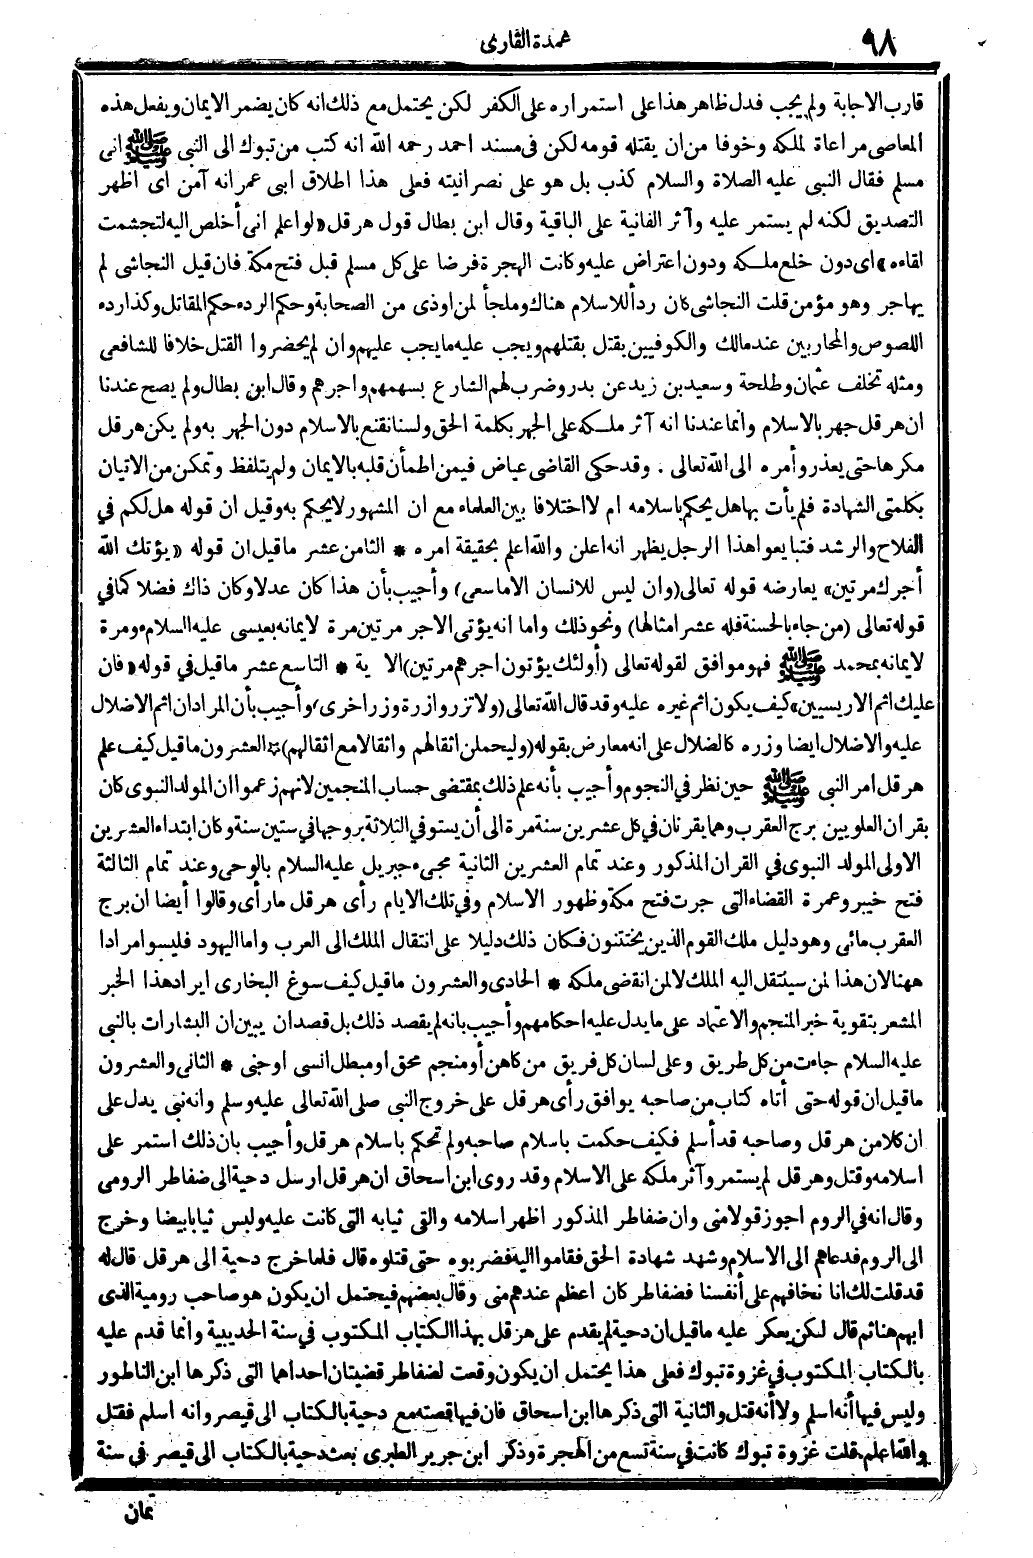 ٩٨
عمدة القارى
قارب الاجابة ولم يجب فدل ظاهر هذا على استمراره على الكفر لكن يحتمل مع ذلك انه كان يضمر الايمان ويفعل هذه
المعاصى مراعاة لملكه وخوفا من ان يقتله قومه لكن فى مسند احمد رحمه الله انه كتب من تبوك الى النبى ﷺ انى
مسلم فقال النبى عليه الصلاة والسلام كذب بل هو على نصرانيته فعلى هذا اطلاق ابى عمر انه آمن اى اظهر
التصديق لكنه لم يستمر عليه وآثر الفانية على الباقية وقال ابن بطال قول هرقل «لو اعلم انى أخلص اليه لتجشمت
لقاءه» اى دون خلع ملكه ودون اعتراض عليه وكانت الهجرة فرضا على كل مسلم قبل فتح مكة فان قيل النجاشى لم
يهاجر وهو مؤمن قلت النجاشى كان ردأ للاسلام هناك وملجأ لمن اوذى من الصحابة وحكم الردء حكم المقاتل وكذا ردء
اللصوص والمحاربين عند مالك والكوفيين يقتل بقتلهم ويجب عليه ما يجب عليهم وان لم يحضروا القتل خلافا للشافعى
ومثله تخلف عثمان وطلحة وسعيد بن زيد عن بدر وضرب لهم الشارع بسهمهم واجرهم وقال ابن بطال ولم يصح عندنا
ان هرقل جهر بالاسلام وانما عندنا انه آثر ملكه على الجهر بكلمة الحق ولسنا نقنع بالاسلام دون الجهر به ولم يكن هرقل
مكرها حتى يعذر وأمره الى الله تعالى . وقد حكى القاضى عياض فيمن اطمأن قلبه بالايمان ولم يتلفظ وتمكن من الاتيان
بكلمتى الشهادة فلم يأت بها هل يحكم باسلامه ام لا اختلافا بين العلماء مع ان المشهور لا يحكم به وقيل ان قوله هل لكم في
الفلاح والرشد فتبايعوا هذا الرجل يظهر انه اعلن والله اعلم بحقيقة امره * الثامن عشر ما قيل ان قوله «يؤتك الله
أجرك مرتين» يعارضه قوله تعالى (وان ليس للانسان الا ما سعى) وأجيب بأن هذا كان عدلا وكان ذاك فضلا كما في
قوله تعالى (من جاء بالحسنة فله عشر امثالها) ونحو ذلك واما انه يؤتى الاجر مرتين مرة لايمانه بعيسى عليه السلام ومرة
لايمانه بمحمد ﷺ فهو موافق لقوله تعالى (أولئك يؤتون اجرهم مرتين) الاية * التاسع عشر ما قيل في قوله «فان
عليك اثم الاريسيين» كيف يكون اثم غيره عليه وقد قال الله تعالى (ولا تزر وازرة وزر اخرى) وأجيب بأن المراد ان اثم الاضلال
عليه والاضلال ايضا وزره كالضلال على انه معارض بقوله (وليحملن اثقالهم واثقالا مع اثقالهم) * العشرون ما قيل كيف علم
هرقل امر النبى ﷺ حين نظر في النجوم وأجيب بأنه علم ذلك بمقتضى حساب المنجمين لانهم زعموا ان المولد النبوى كان
بقران العلويين ببرج العقرب وهما يقرنان في كل عشرين سنة مرة الى أن يستوفي الثلاثة بروجها في ستين سنة وكان ابتداء العشرين
الاولى المولد النبوى في القران المذكور وعند تمام العشرين الثانية مجىء جبريل عليه السلام بالوحى وعند تمام الثالثة
فتح خيبر وعمرة القضاء التى جرت فتح مكة وظهور الاسلام وفي تلك الايام رأى هرقل ما رأى وقالوا أيضا ان برج
العقرب مائى وهو دليل ملك القوم الذين يختتنون فكان ذلك دليلا على انتقال الملك الى العرب واما اليهود فليسوا مرادا
ههنا لان هذا لمن سينتقل اليه الملك لا لمن انقضى ملكه * الحادى والعشرون ما قيل كيف سوغ البخارى ايراد هذا الخبر
المشعر بتقوية خبر المنجم والاعتماد على ما يدل عليه احكامهم وأجيب بانه لم يقصد ذلك بل قصد ان يبين ان البشارات بالنبى
عليه السلام جاءت من كل طريق وعلى لسان كل فريق من كاهن أو منجم محق او مبطل انسى او جنى * الثانى والعشرون
ما قيل ان قوله حتى أتاه كتاب من صاحبه يوافق رأى هرقل على خروج النبى صلى الله تعالى عليه وسلم وانه نبى يدل على
ان كلا من هرقل وصاحبه قد أسلم فكيف حكمت باسلام صاحبه ولم تحكم باسلام هرقل وأجيب بان ذلك استمر على
اسلامه وقتل وهرقل لم يستمر وآثر ملكه على الاسلام وقد روى ابن اسحاق ان هرقل ارسل دحية الى ضفاطر الرومى
وقال انه في الروم اجوز قولا منى وان ضفاطر المذكور اظهر اسلامه والقى ثيابه التى كانت عليه ولبس ثيابا بيضا وخرج
الى الروم فدعاهم الى الاسلام وشهد شهادة الحق فقاموا اليه فضربوه حتى قتلوه قال فلما خرج دحية الى هرقل قال له
قد قلت لك انا نخافهم على أنفسنا فضفاطر كان اعظم عندهم منى وقال بعضهم فيحتمل ان يكون هو صاحب رومية الذى
ابهم هنا ثم قال لكن يعكر عليه ما قيل ان دحية لم يقدم على هرقل بهذا الكتاب المكتوب في سنة الحديبية وانما قدم عليه
بالكتاب المكتوب في غزوة تبوك فعلى هذا يحتمل ان يكون وقعت لضفاطر قضيتان احداهما التى ذكرها ابن الناطور
وليس فيها أنه اسلم ولا أنه قتل والثانية التى ذكرها ابن اسحاق فان فيها قصته مع دحية بالكتاب الى قيصر وانه اسلم فقتل
والله اعلم قلت غزوة تبوك كانت في سنة تسع من الهجرة وذكر ابن جرير الطبرى بعث دحية بالكتاب الى قيصر في سنة
ثمان